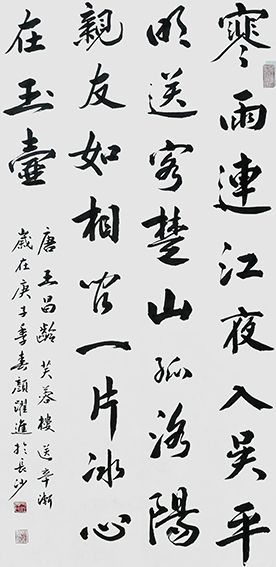 寒雨連江夜入吳平
明送客楚山孤洛陽
親友如相問一片冰心
在玉壺
唐王昌齡芙蓉樓送辛漸
歲在庚子季春顏躍進於長沙